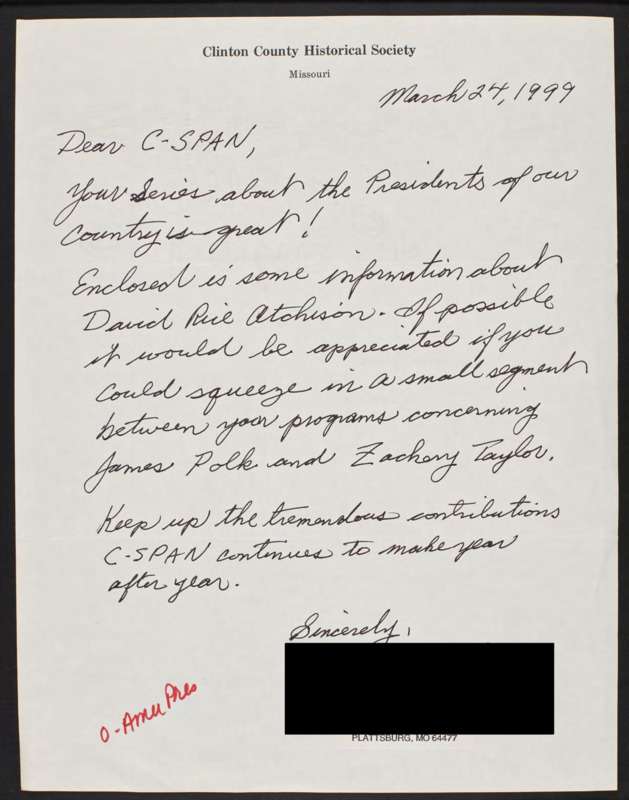 Clinton County Historical Society
Missouri
March 24, 1999
Dear C-SPAN,
Your Series about the Presidents of our
Country is great!
Enclosed is some information about
David Rice Atchison. If possible
it would be appreciated if you
could squeeze in a small segment
between your programs concerning
James Polk and Zachery Taylor.
Keep up the tremendous contributions
C-SPAN continues to make year
after year.
Sincerely,
PLATTSBURG, MO 64477
O-Amer Pres